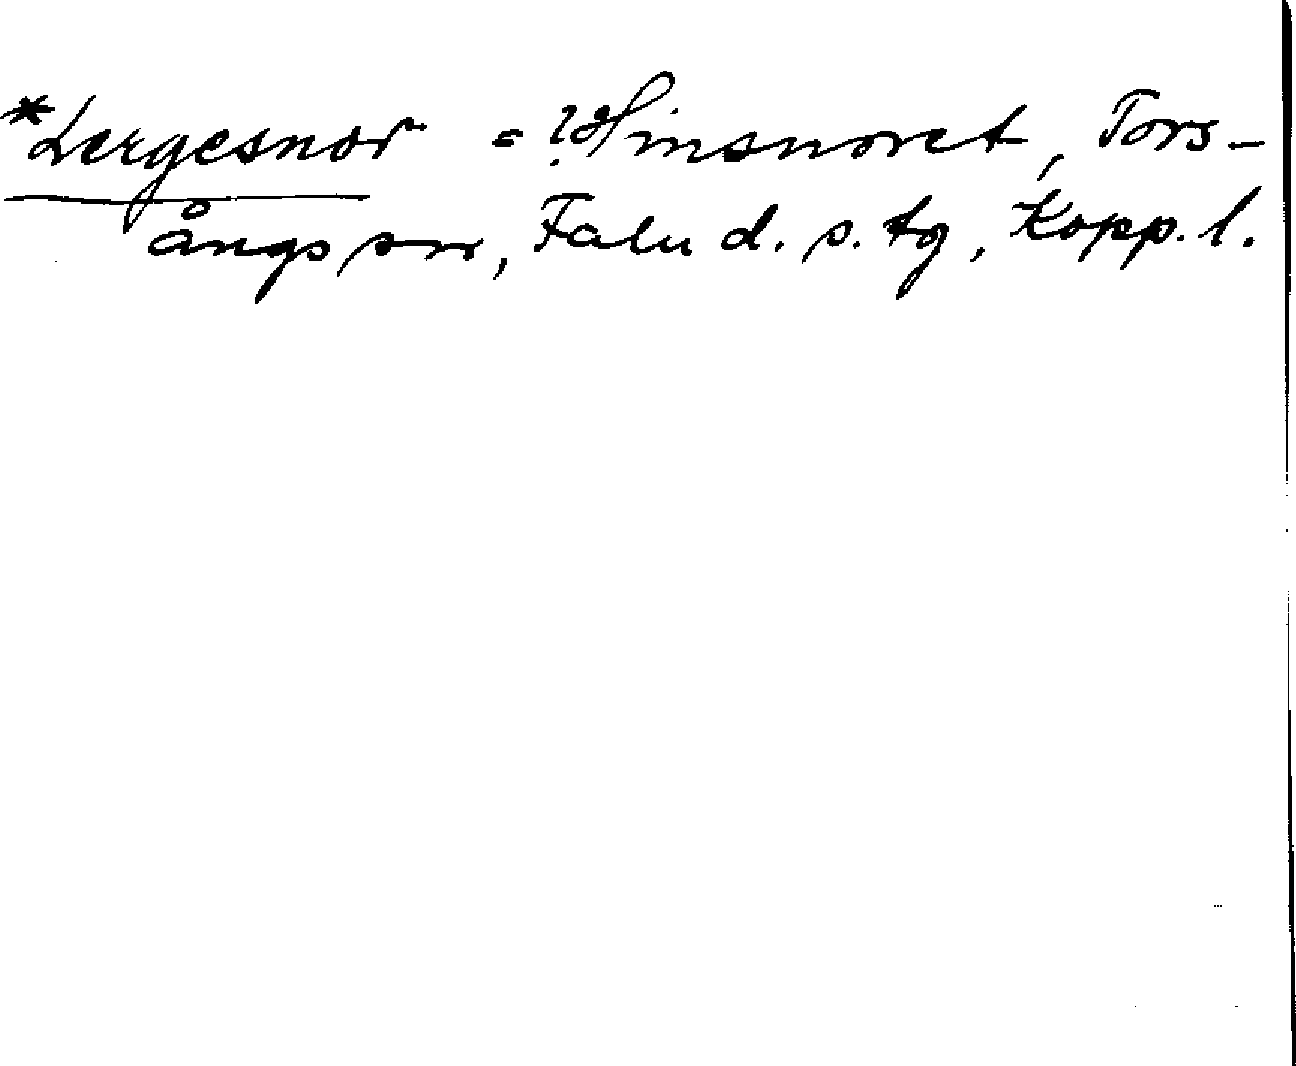 *Lergesnor = ?Hinsnoret, Tors-
ångs sn, Falu d. s. tg, Kopp. l.